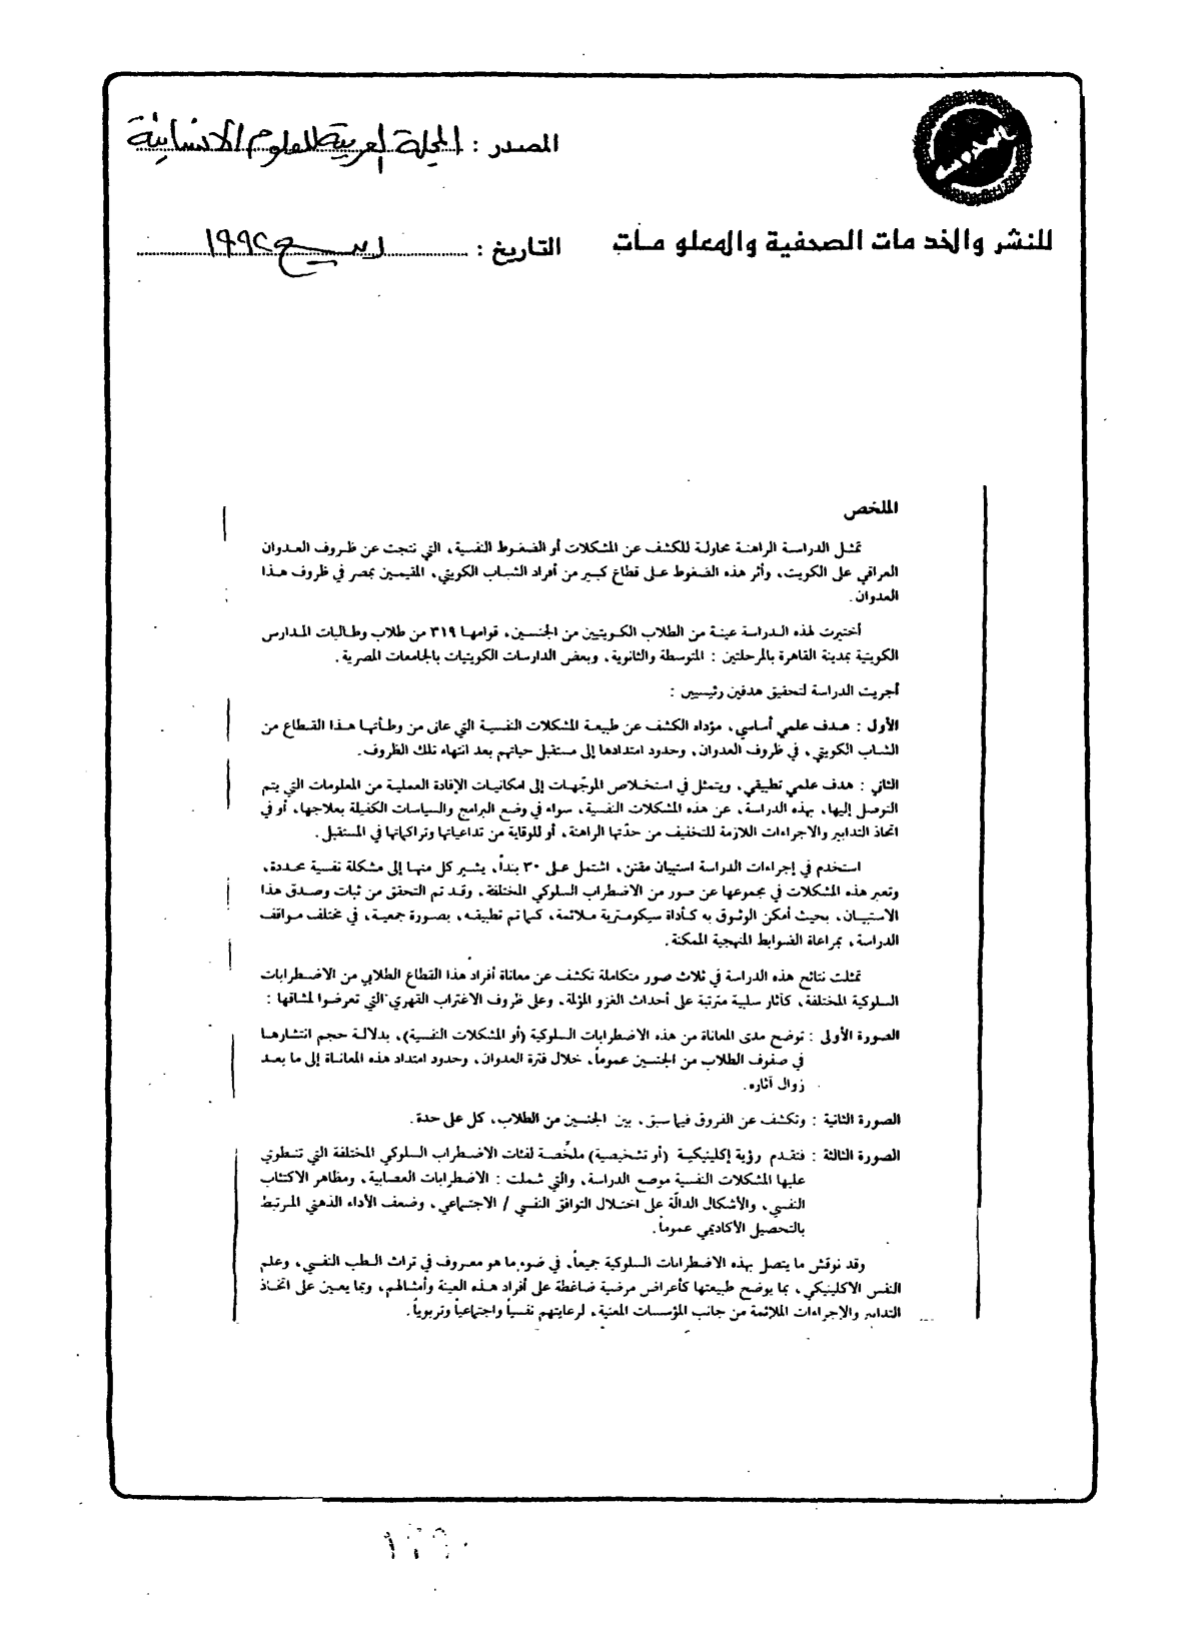 المصدر : المجلة العربية للعلوم الانسانية
للنشر والخدمات الصحفية والمعلومات
التاريخ : ربيع ١٩٩٢
الملخص
تمثل الدراسة الراهنة محاولة للكشف عن المشكلات أو الضغوط النفسية، التي نتجت عن ظروف العدوان
العراقي على الكويت، وأثر هذه الضغوط على قطاع كبير من أفراد الشباب الكويتي، المقيمين بمصر في ظروف هذا
العدوان.
أختيرت لهذه الدراسة عينة من الطلاب الكويتيين من الجنسين، قوامها ٣١٩ من طلاب وطالبات المدارس
الكويتية بمدينة القاهرة بالمرحلتين : المتوسطة والثانوية، وبعض الدارسات الكويتيات بالجامعات المصرية.
أجريت الدراسة لتحقيق هدفين رئيسيين :
الأول : هدف علمي أساسي، مؤداه الكشف عن طبيعة المشكلات النفسية التي عانى من وطأتها هذا القطاع من
الشباب الكويتي، في ظروف العدوان، وحدود امتدادها إلى مستقبل حياتهم بعد انتهاء تلك الظروف.
الثاني : هدف علمي تطبيقي، ويتمثل في استخلاص الموجّهات إلى امكانيات الإفادة العملية من المعلومات التي يتم
التوصل إليها، بهذه الدراسة، عن هذه المشكلات النفسية، سواء في وضع البرامج والسياسات الكفيلة بعلاجها، أو في
اتخاذ التدابير والاجراءات اللازمة للتخفيف من حدّتها الراهنة، أو للوقاية من تداعياتها وتراكماتها في المستقبل.
استخدم في إجراءات الدراسة استبيان مقنن، اشتمل على ٣٠ بنداً، يشير كل منها إلى مشكلة نفسية محددة،
وتعبر هذه المشكلات في مجموعها عن صور من الاضطراب السلوكي المختلفة، وقد تم التحقق من ثبات وصدق هذا
الاستبيان، بحيث أمكن الوثوق به كأداة سيكومترية ملائمة، كما تم تطبيقه، بصورة جمعية، في مختلف مواقف
الدراسة، بمراعاة الضوابط المنهجية الممكنة.
تمثلت نتائج هذه الدراسة في ثلاث صور متكاملة تكشف عن معاناة أفراد هذا القطاع الطلابي من الاضطرابات
السلوكية المختلفة، كآثار سلبية مترتبة على أحداث الغزو المؤلمة، وعلى ظروف الاغتراب القهري التي تعرضوا لمشاقها :
الصورة الأولى : توضح مدى المعاناة من هذه الاضطرابات السلوكية (أو المشكلات النفسية)، بدلالة حجم انتشارها
في صفوف الطلاب من الجنسين عموماً، خلال فترة العدوان، وحدود امتداد هذه المعاناة إلى ما بعد
زوال آثاره.
الصورة الثانية : وتكشف عن الفروق فيما سبق، بين الجنسين من الطلاب، كل على حدة.
الصورة الثالثة : فتقدم رؤية إكلينيكية (أو تشخيصية) ملخّصة لفئات الاضطراب السلوكي المختلفة التي تنطوي
عليها المشكلات النفسية موضع الدراسة، والتي شملت : الاضطرابات العصابية، ومظاهر الاكتئاب
النفسي، والأشكال الدالّة على اختلال التوافق النفسي / الاجتماعي، وضعف الأداء الذهني المرتبط
بالتحصيل الأكاديمي عموماً.
وقد نوقش ما يتصل بهذه الاضطرابات السلوكية جميعاً، في ضوء ما هو معروف في تراث الطب النفسي، وعلم
النفس الاكلينيكي، بما يوضح طبيعتها كأعراض مرضية ضاغطة على أفراد هذه العينة وأمثالهم، وبما يعين على اتخاذ
التدابير والإجراءات الملائمة من جانب المؤسسات المعنية، لرعايتهم نفسياً واجتماعياً وتربوياً.